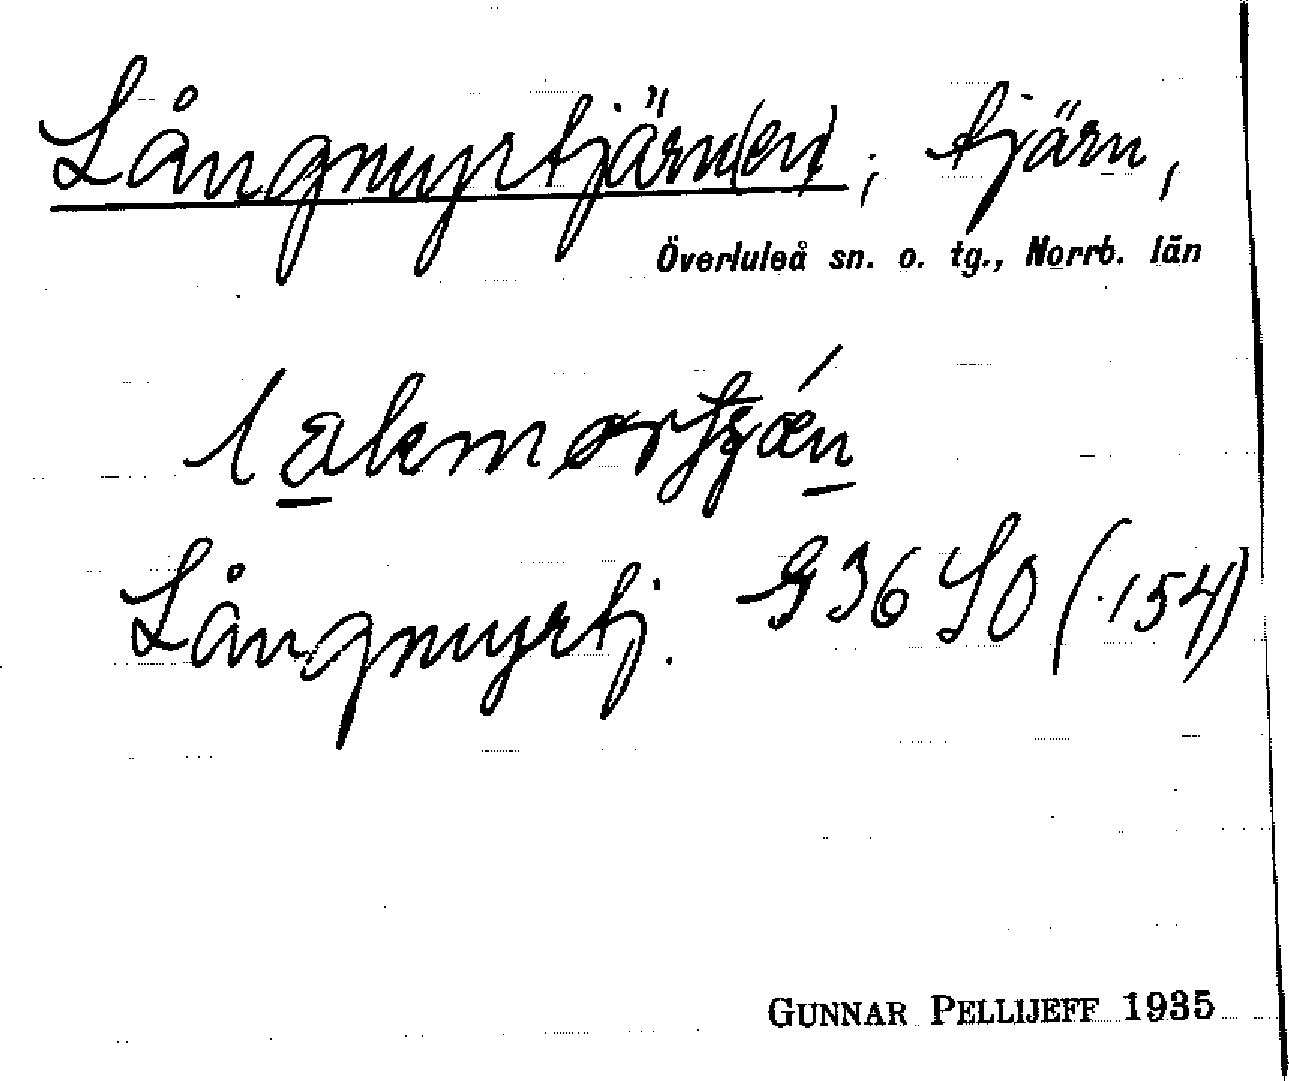 Långmyrtjärn(en); tjärn,
Överluleå sn. o. tg., Norrb. län
Långmyrtj. G36 SO (154)
GUNNAR PELLIJEFF 1935